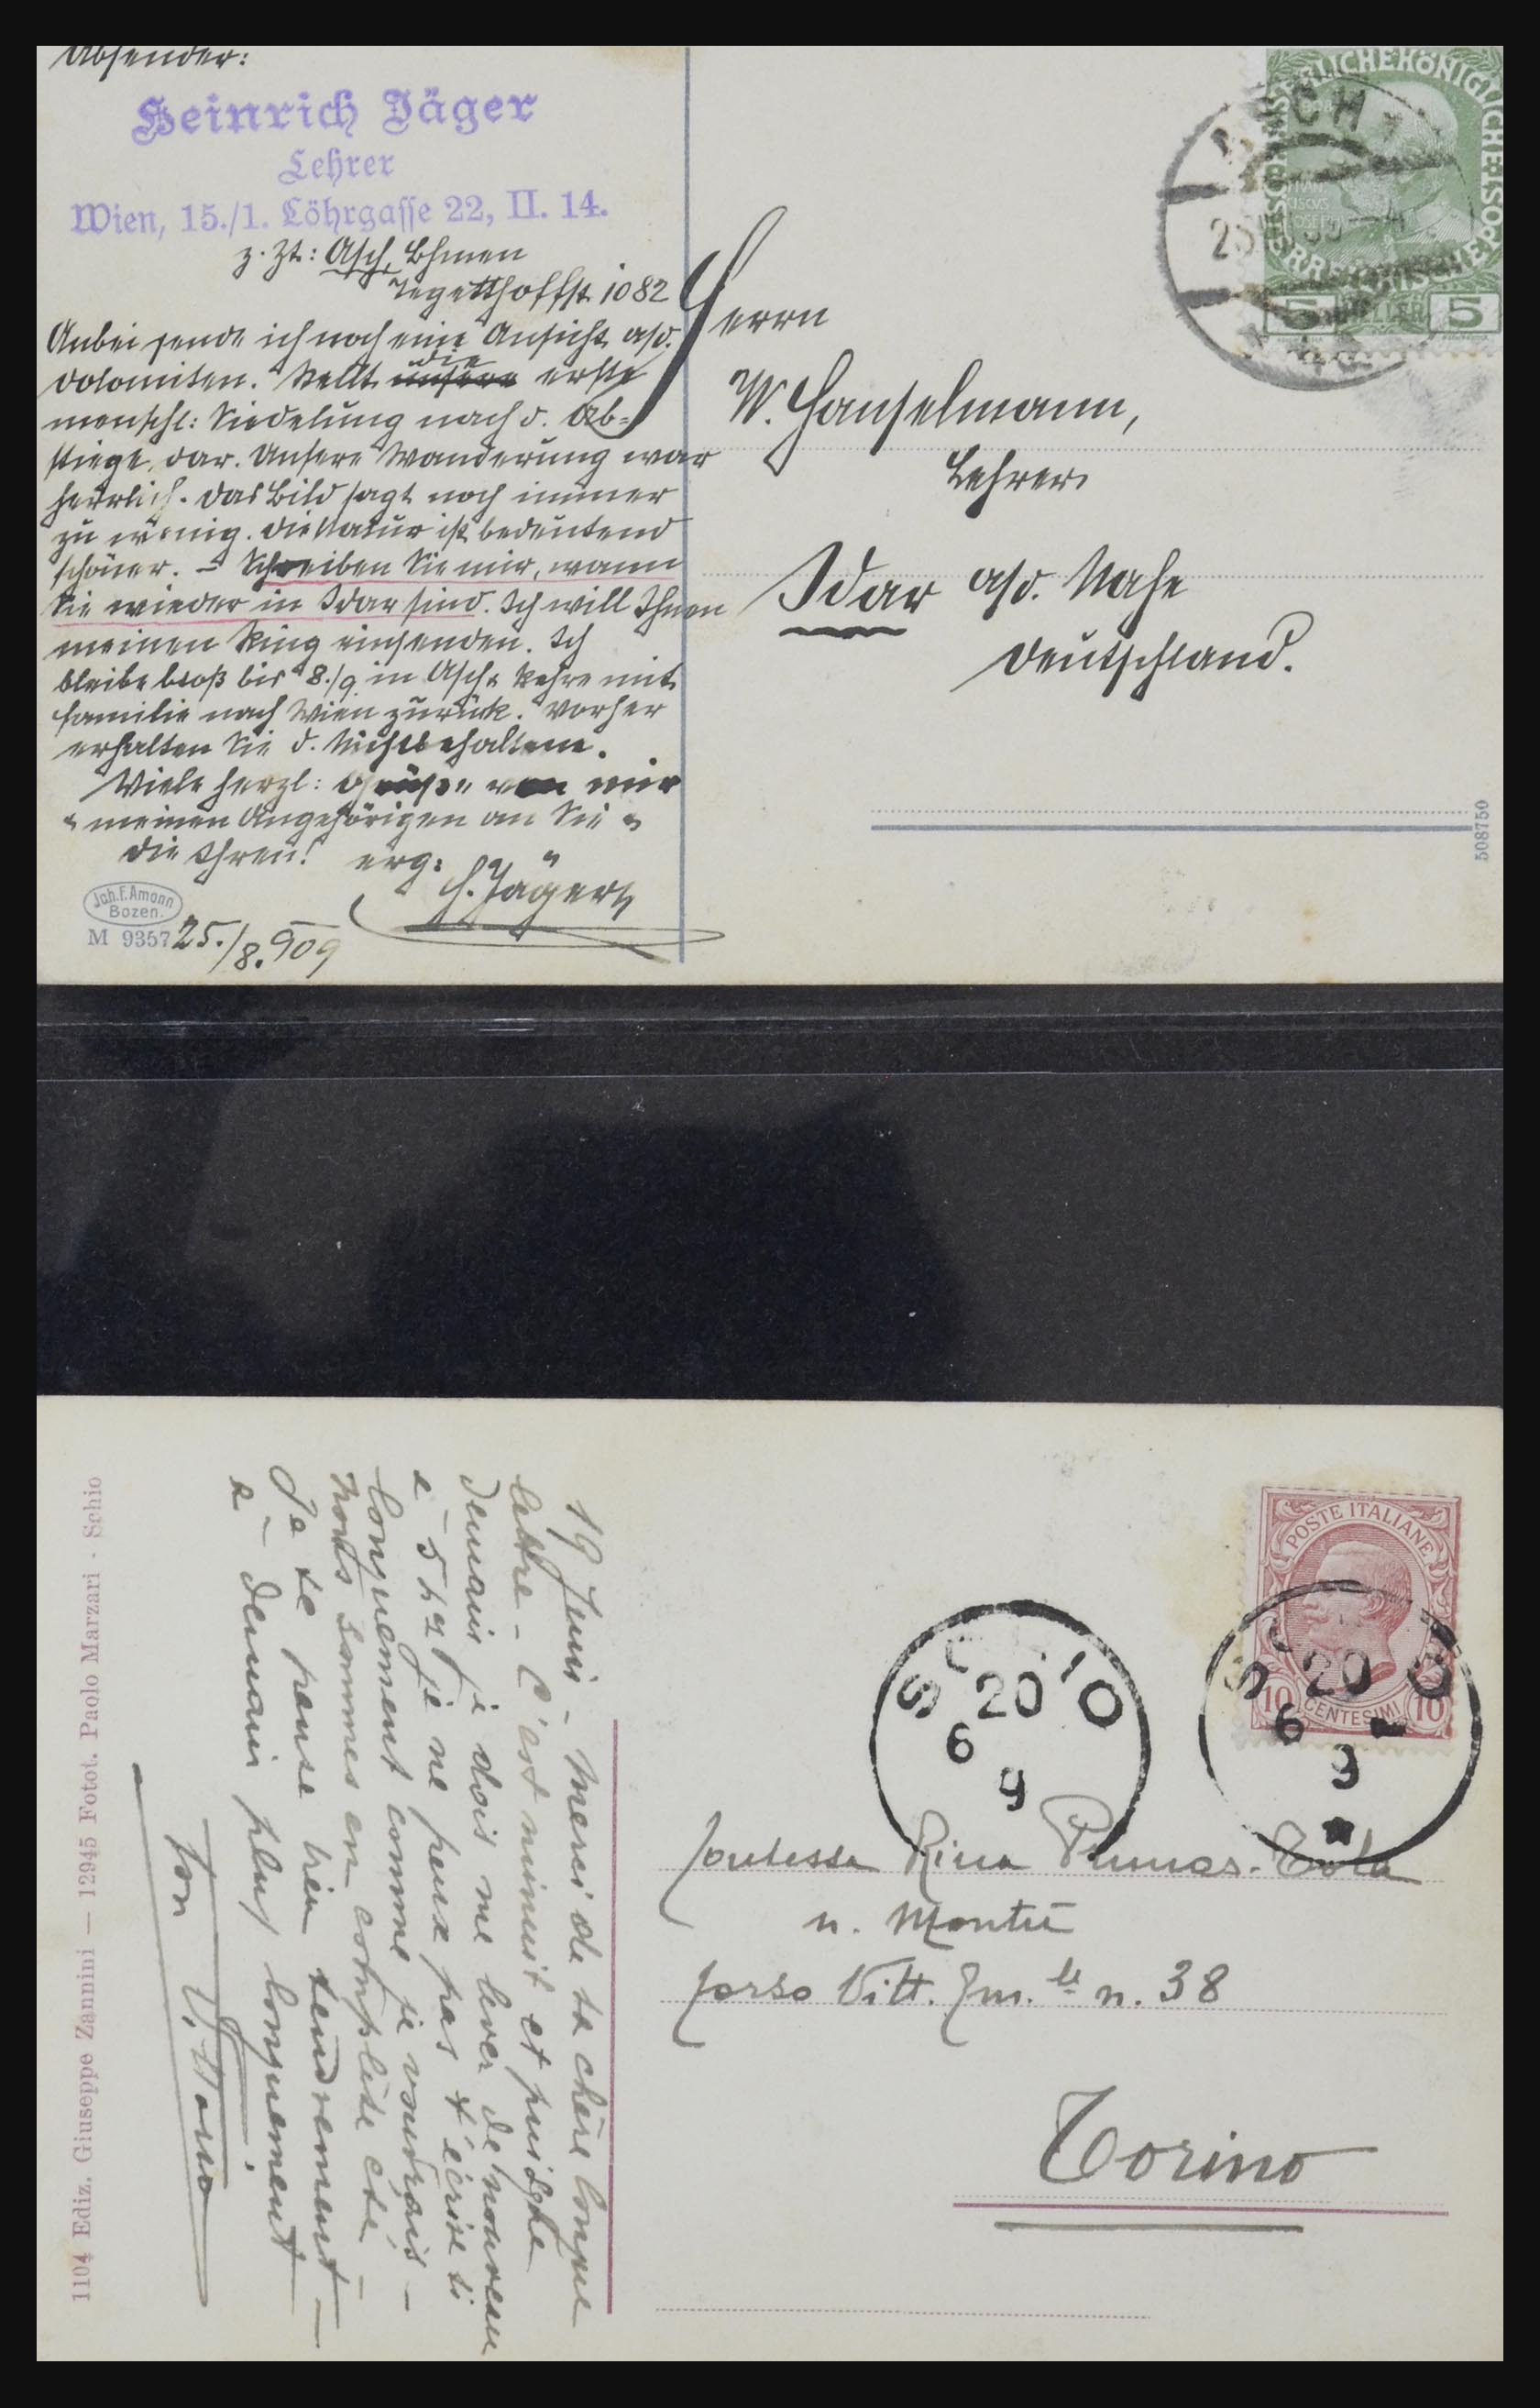 Absender:
Heinrich Jäger
Lehrer
Wien, 15./1. Löhrgasse 22, II. 14.
z. Zt.: Asch, Bhmen
Tegetthoffst. 1082
Anbei sende ich noch eine Ansicht a/d.
Dolomiten. Stellt unsere die erste
menschl: Siedelung nach d. Ab=
stiege dar. Unsere Wanderung war
herrlich. Das Bild sagt noch immer
zu wenig. Die Natur ist bedeutend
schöner. – Schreiben Sie mir, wann
Sie wieder in Idar sind. Ich will Ihnen
meinen Ring einsenden. Ich
bleibe bloß bis 8./9. in Asch & kehre mit
Familie nach Wien zurück. Vorher
erhalten Sie d. Nichtbehaltene.
Viele herzl: Grüße von mir
& meinen Angehörigen an Sie &
die Ihren! erg:
H. Jäger
Joh. F. Amonn
Bozen.
M 9357
25./8. 909
Herrn
W. Hanselmann,
Lehrer
Idar a/d. Nahe
Deutschland.
508750
ASCH 1
KAISERLICHE KÖNIGLICHE ÖSTERREICHISCHE POST
5 HELLER 5
1104 Ediz. Giuseppe Zannini — 12945 Fotot. Paolo Marzari - Schio
19 Juin – Merci de ta chère longue
lettre – C'est minuit et puisque
demain je dois me lever de nouveau
a 5 h je ne peux pas t'écrire si
longuement comme je voudrais –
Nous sommes en complète été –
Je te pense bien tendrement –
a demain plus longuement
Ton
POSTE ITALIANE
10 CENTESIMI 10
SCHIO
20
6
9
SCHIO
20
6
9
Contessa Rina
n. Montù
Corso Vitt. Em.le n. 38
Torino